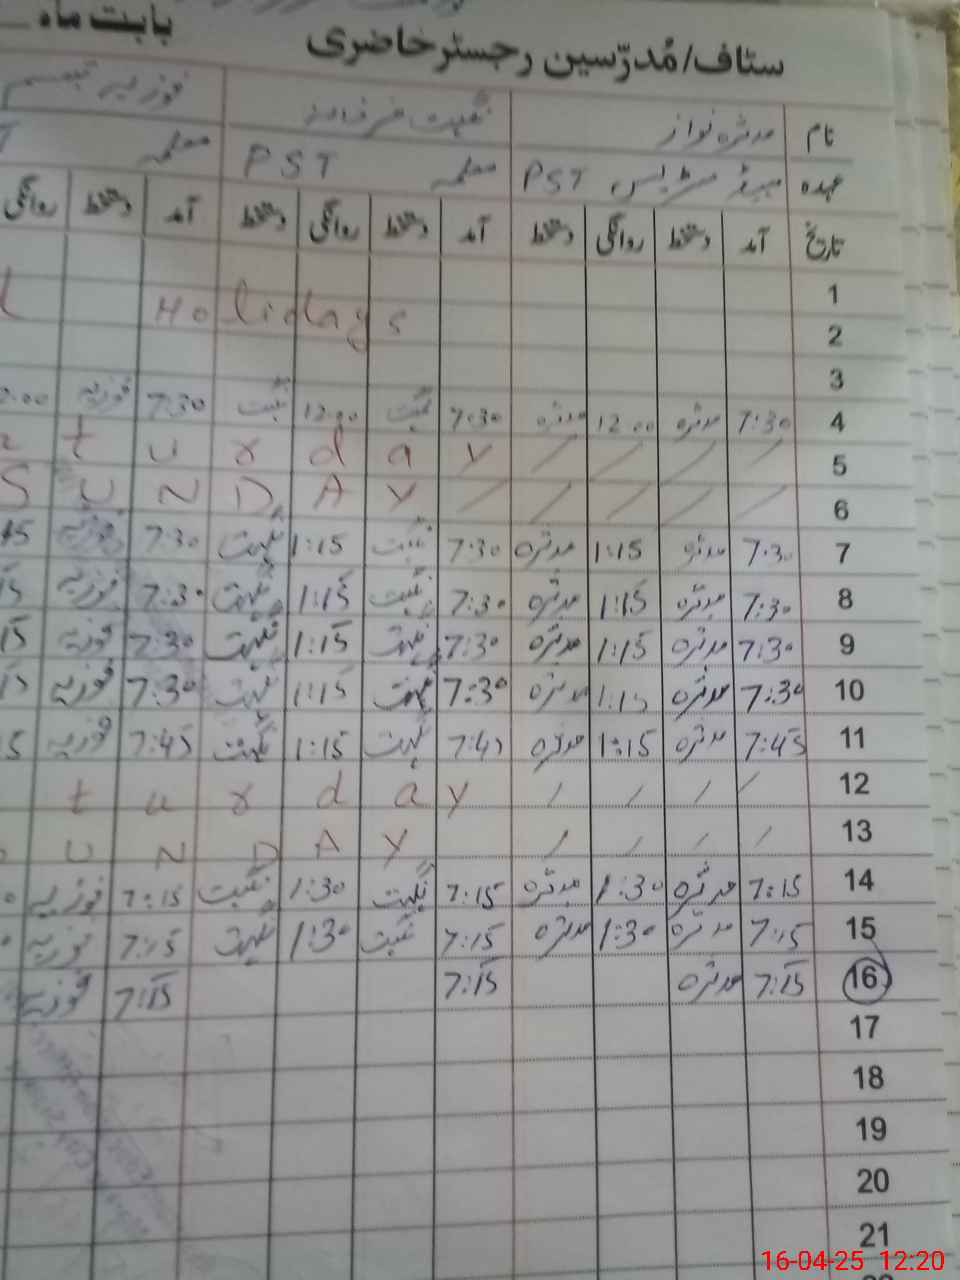 ستاف/مُدرّسین رجسٹر حاضری بابت ماہ
نام مدثرہ نواز نگہت فوزیہ تبسم
عہدہ ہیڈ مسٹریس PST معلمہ PST معلمہ
تاریخ آمد دستخط روانگی دستخط آمد دستخط روانگی دستخط آمد دستخط روانگی
1
2 Holidays
3
4 7:30 مدثرہ 12:00 مدثرہ 7:30 نگہت 12:00 نگہت 7:30 فوزیہ
5 turday
6 SUNDAY
7 7:30 مدثرہ 1:15 مدثرہ 7:30 نگہت 1:15 نگہت 7:30 فوزیہ
8 7:30 مدثرہ 1:15 مدثرہ 7:30 نگہت 1:15 نگہت 7:30 فوزیہ
9 7:30 مدثرہ 1:15 مدثرہ 7:30 نگہت 1:15 نگہت 7:30 فوزیہ
10 7:30 مدثرہ 1:15 مدثرہ 7:30 نگہت 1:15 نگہت 7:30 فوزیہ
11 7:45 مدثرہ 1:15 مدثرہ 7:45 نگہت 1:15 نگہت 7:45 فوزیہ
12 turday
13 UNDAY
14 7:15 مدثرہ 1:30 مدثرہ 7:15 نگہت 1:30 نگہت 7:15 فوزیہ
15 7:15 مدثرہ 1:30 مدثرہ 7:15 نگہت 1:30 نگہت 7:15 فوزیہ
16 7:15 مدثرہ 7:15 7:15 فوزیہ
17
18
19
20
21
16-04-25 12:20